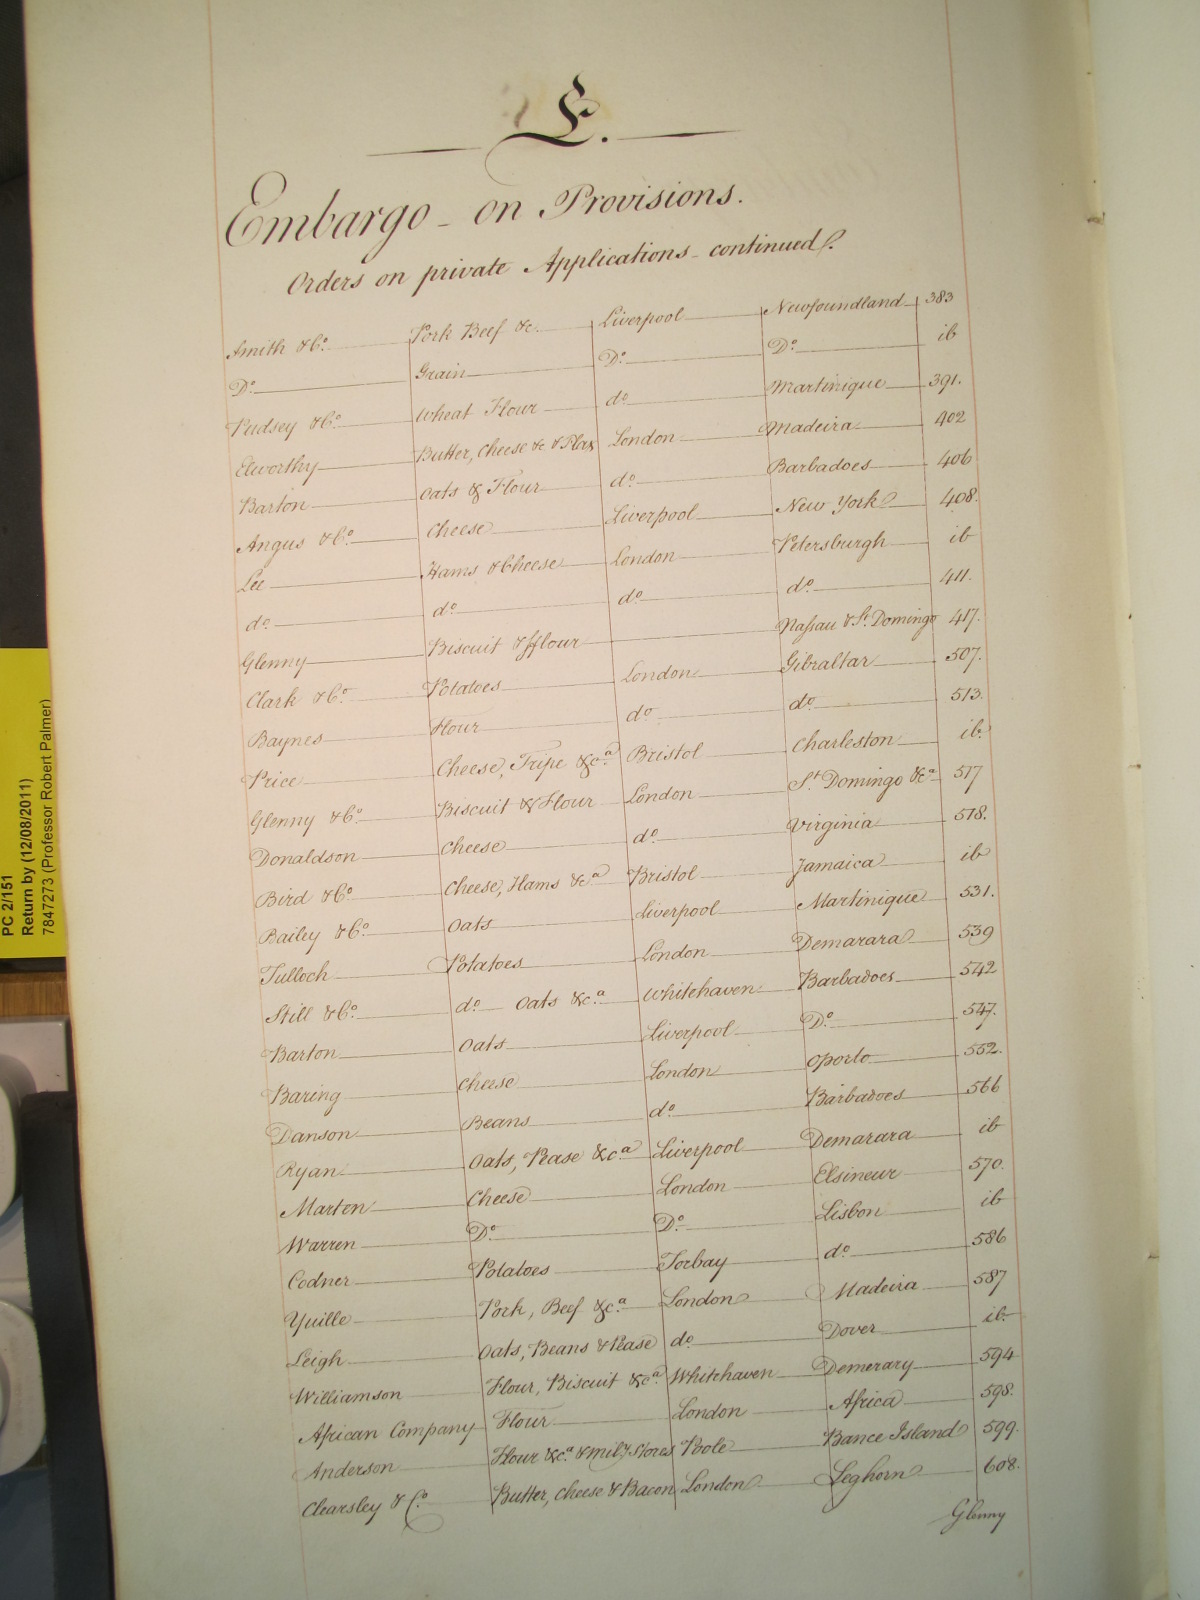 E.
Embargo - on Provisions.
Orders on private Applications - continued.
Smith & Co. Pork Beef &c. Liverpool Newfoundland 383
Do. Grain Do. Do. ib
Pudsey & Co. Wheat Flour do. Martinique 391.
Elworthy Butter, Cheese &c & Flax London Madeira 402
Barton Oats & Flour do. Barbadoes 406
Angus & Co. Cheese Liverpool New York 408.
Lee Hams & Cheese London Petersburgh ib
do. do. do. do. 411.
Glenny Biscuit & fflour Nassau & St. Domingo 417.
Clark & Co. Potatoes London Gibraltar 507.
Baynes Flour do. do. 513.
Price Cheese, Tripe &ca. Bristol Charleston ib.
Glenny & Co. Biscuit & Flour London St. Domingo &ca 517
Donaldson Cheese do. Virginia 518.
Bird & Co. Cheese, Hams &ca Bristol Jamaica ib
Bailey & Co. Oats Liverpool Martinique 531.
Tulloch Potatoes London Demarara 539
Still & Co. do. Oats &ca. Whitehaven Barbadoes 542
Barton Oats Liverpool Do. 547.
Baring Cheese London Oporto 552.
Danson Beans do. Barbadoes 566
Ryan Oats, Pease &ca. Liverpool Demarara ib
Marten Cheese London Elsineur 570.
Warren Do. Do. Lisbon ib
Codner Potatoes Torbay do. 586
Yuille Pork, Beef &ca. London Madeira 587
Leigh Oats, Beans & Pease do. Dover ib.
Williamson Flour, Biscuit &ca. Whitehaven Demerary 594
African Company Flour London Africa 598.
Anderson Flour &ca. & Mily. Stores Poole Bance Island 599.
Clearsley & Co. Butter, Cheese & Bacon London Leghorn 608.
Glenny
PC 2/151
Return by (12/08/2011)
7847273 (Professor Robert Palmer)